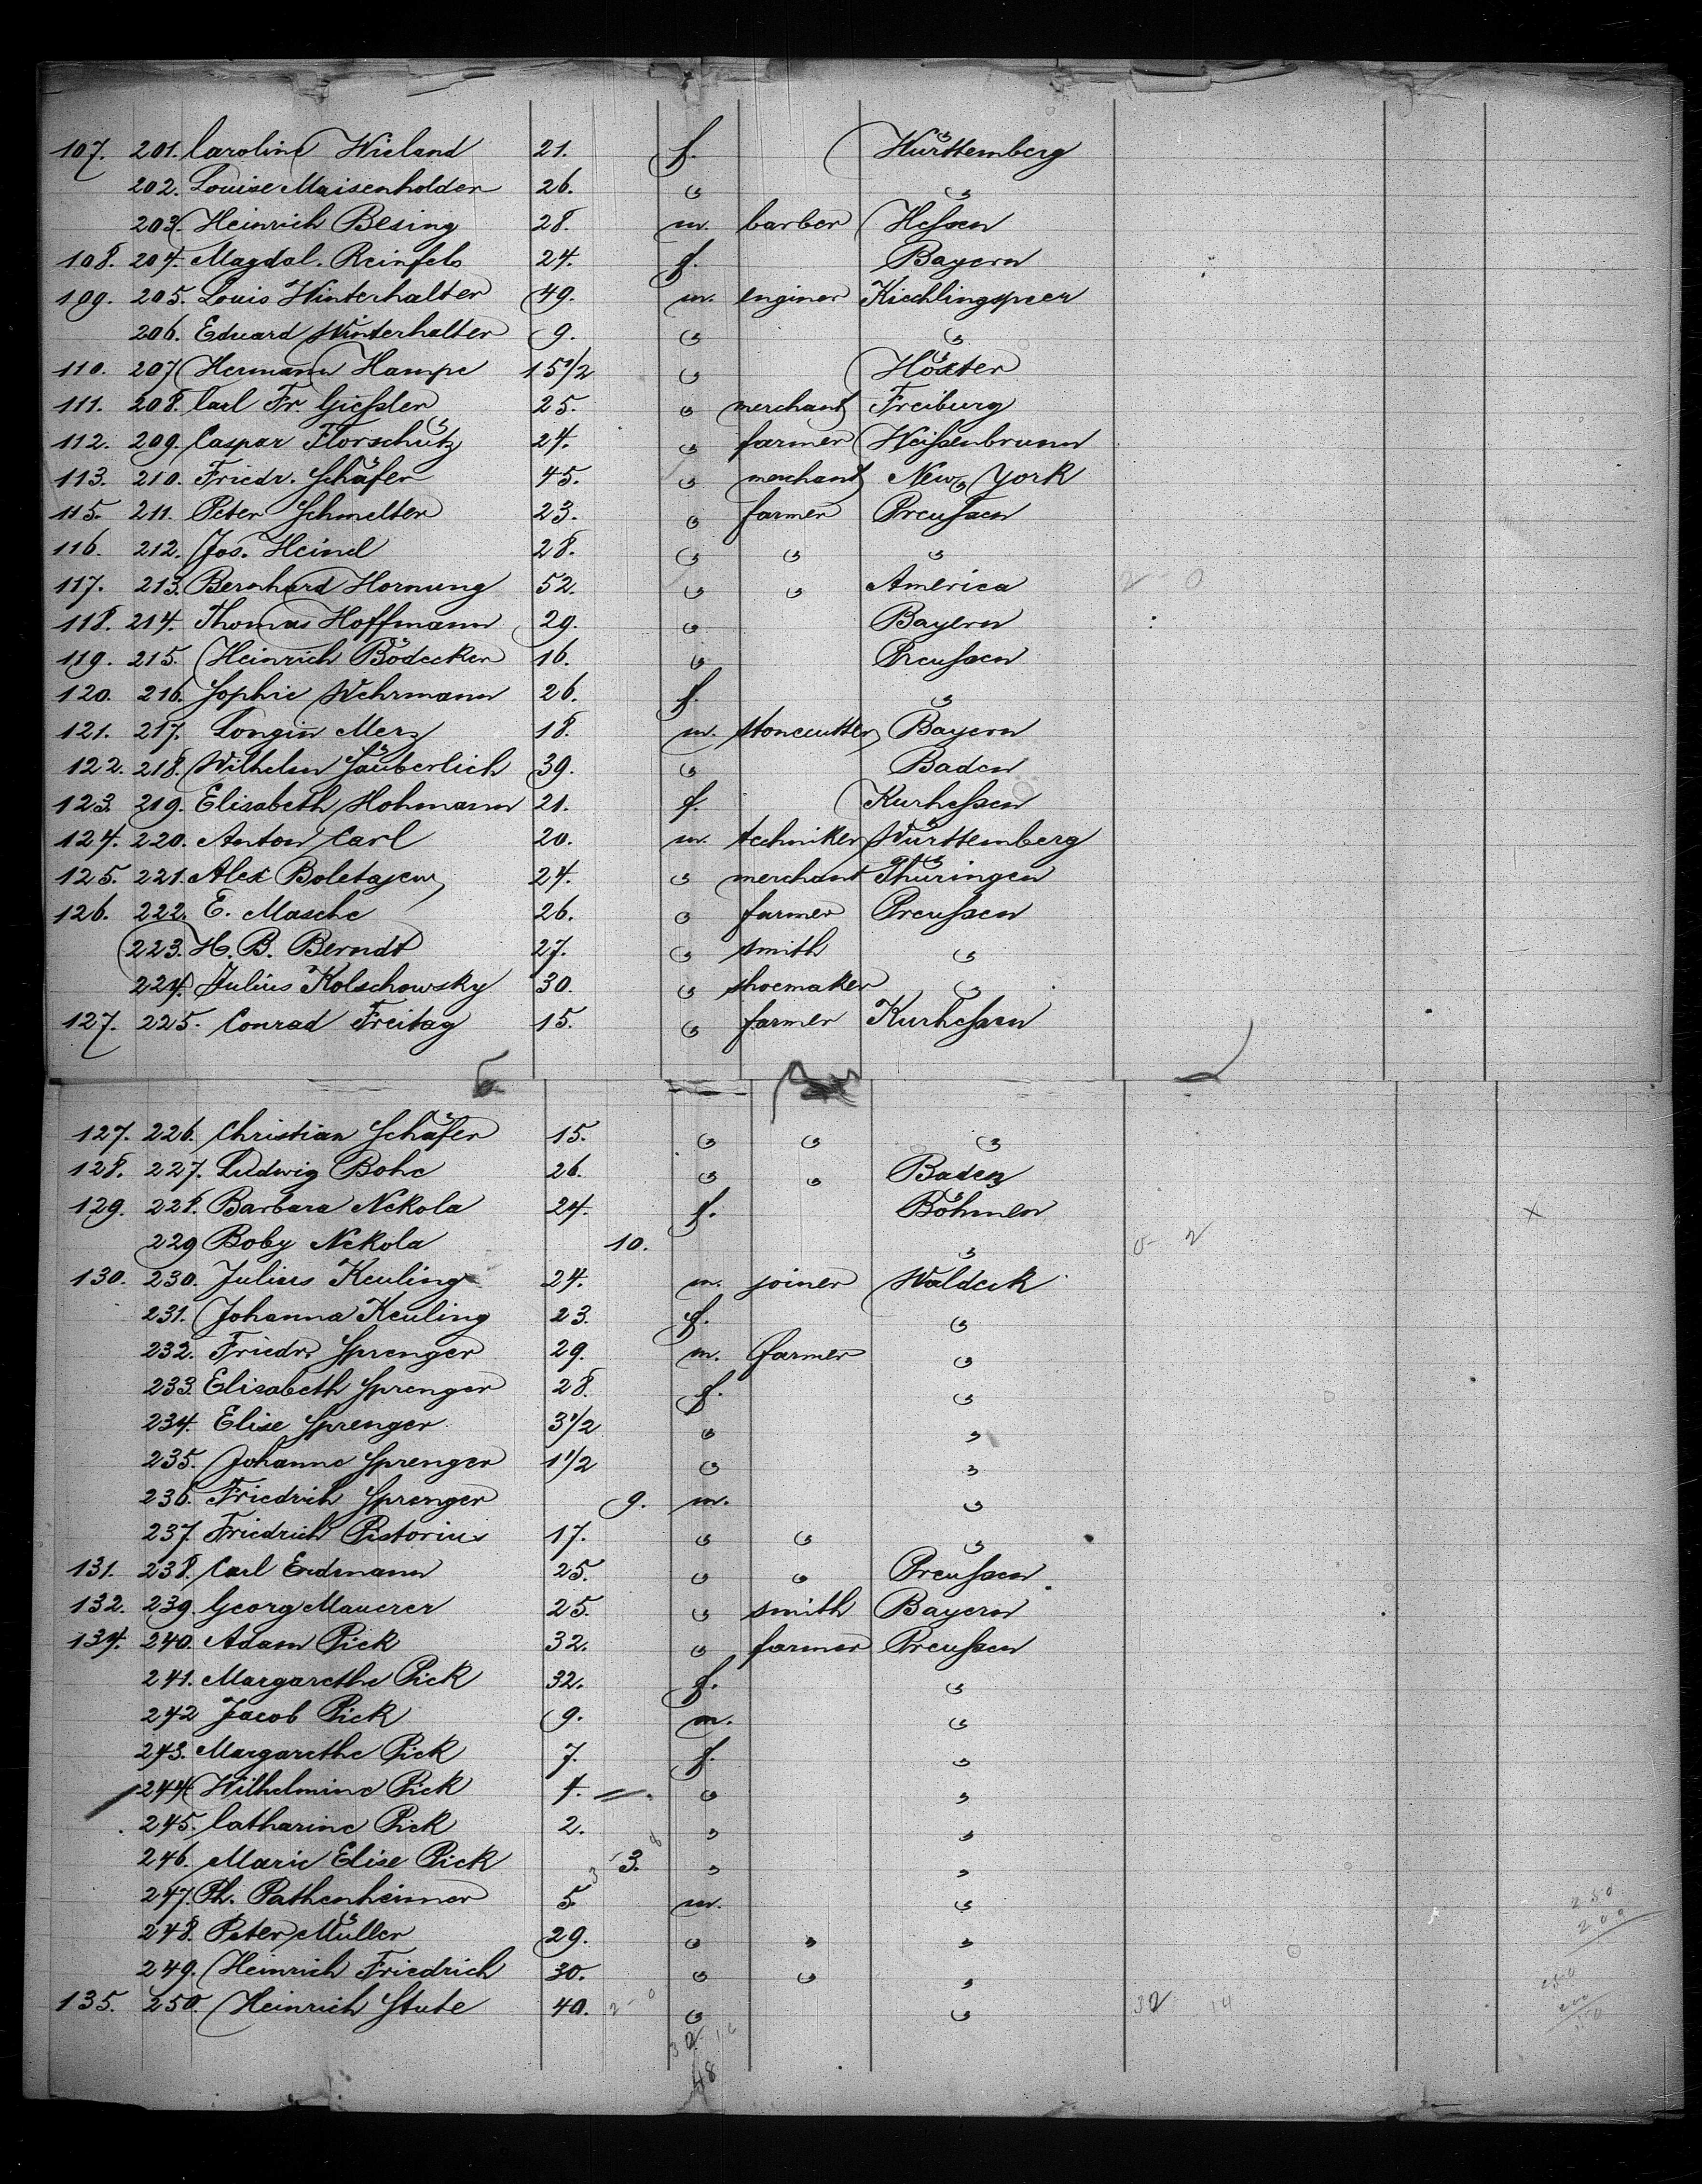 107. 201. Caroline Wieland 21. f. Württemberg
202. Louise Maisenholder 26. " "
203. Heinrich Besing 28. m. barber Hessen
108. 204. Magdal. Reinfels 24. f. Bayern
109. 205. Louis Winterhalter 49. m. enginer Kiechlingspeer
206. Eduard Winterhalter 9. " "
110. 207. Hermann Hampe 15 1/2 " Höxter
111. 208. Carl Fr. Giessler 25. " merchant Freiburg
112. 209. Caspar Florschütz 24. " farmer Weissenbrunn
113. 210. Friedr. Schäfer 45. " merchant New York
115. 211. Peter Schmelter 23. " farmer Preussen
116. 212. Jos. Heinel 28. " " "
117. 213. Bernhard Hornung 52. " " America 2 - 0
118. 214. Thomas Hoffmann 29. " Bayern
119. 215. Heinrich Bödecker 16. " Preussen
120. 216. Sophie Wehrmann 26. f. "
121. 217. Longin Merz 18. m. stonecutter Bayern
122. 218. Wilhelm Säuberlich 39. " Baden
123. 219. Elisabeth Hohmann 21. f. Kurhessen
124. 220. Anton Carl 20. m. techniker Württemberg
125. 221. Alex Boletajew 24. " merchant Thüringen
126. 222. E. Masche 26. " farmer Preussen
223. H. B. Berndt 27. " smith "
224. Julius Kolschowsky 30. " shoemaker "
127. 225. Conrad Freitag 15. " farmer Kurhessen
127. 226. Christian Schäfer 15. " " "
128. 227. Ludwig Bohe 26. " " Baden
129. 228. Barbara Nekola 24. f. Böhmen x
229 Boby Nekola 10. " 0 - 2
130. 230. Julius Keuling 24. m. joiner Waldeck
231. Johanna Keuling 23. f. "
232. Friedr. Sprenger 29. m. farmer "
233. Elisabeth Sprenger 28. f. "
234. Elise Sprenger 3 1/2 " "
235. Johanne Sprenger 1 1/2 " "
236. Friedrich Sprenger 9. m. "
237. Friedrich Pistorius 17. " " "
131. 238. Carl Erdmann 25. " " Preussen
132. 239. Georg Mauerer 25. " smith Bayern
134. 240. Adam Pick 32. " farmer Preussen
241. Margarethe Pick 32. f. "
242 Jacob Pick 9. m. "
243. Margarethe Pick 7. f. "
244. Wilhelmine Pick 4. " "
245. Catharine Pick 2. " "
246. Marie Elise Pick 3. " "
247. Ph. Pathenheimer 5. m. "
248. Peter Müller 29. " " "
249. Heinrich Friedrich 30. " " "
135. 250. Heinrich Stute 40. 2 - 0 " " 32 14
48